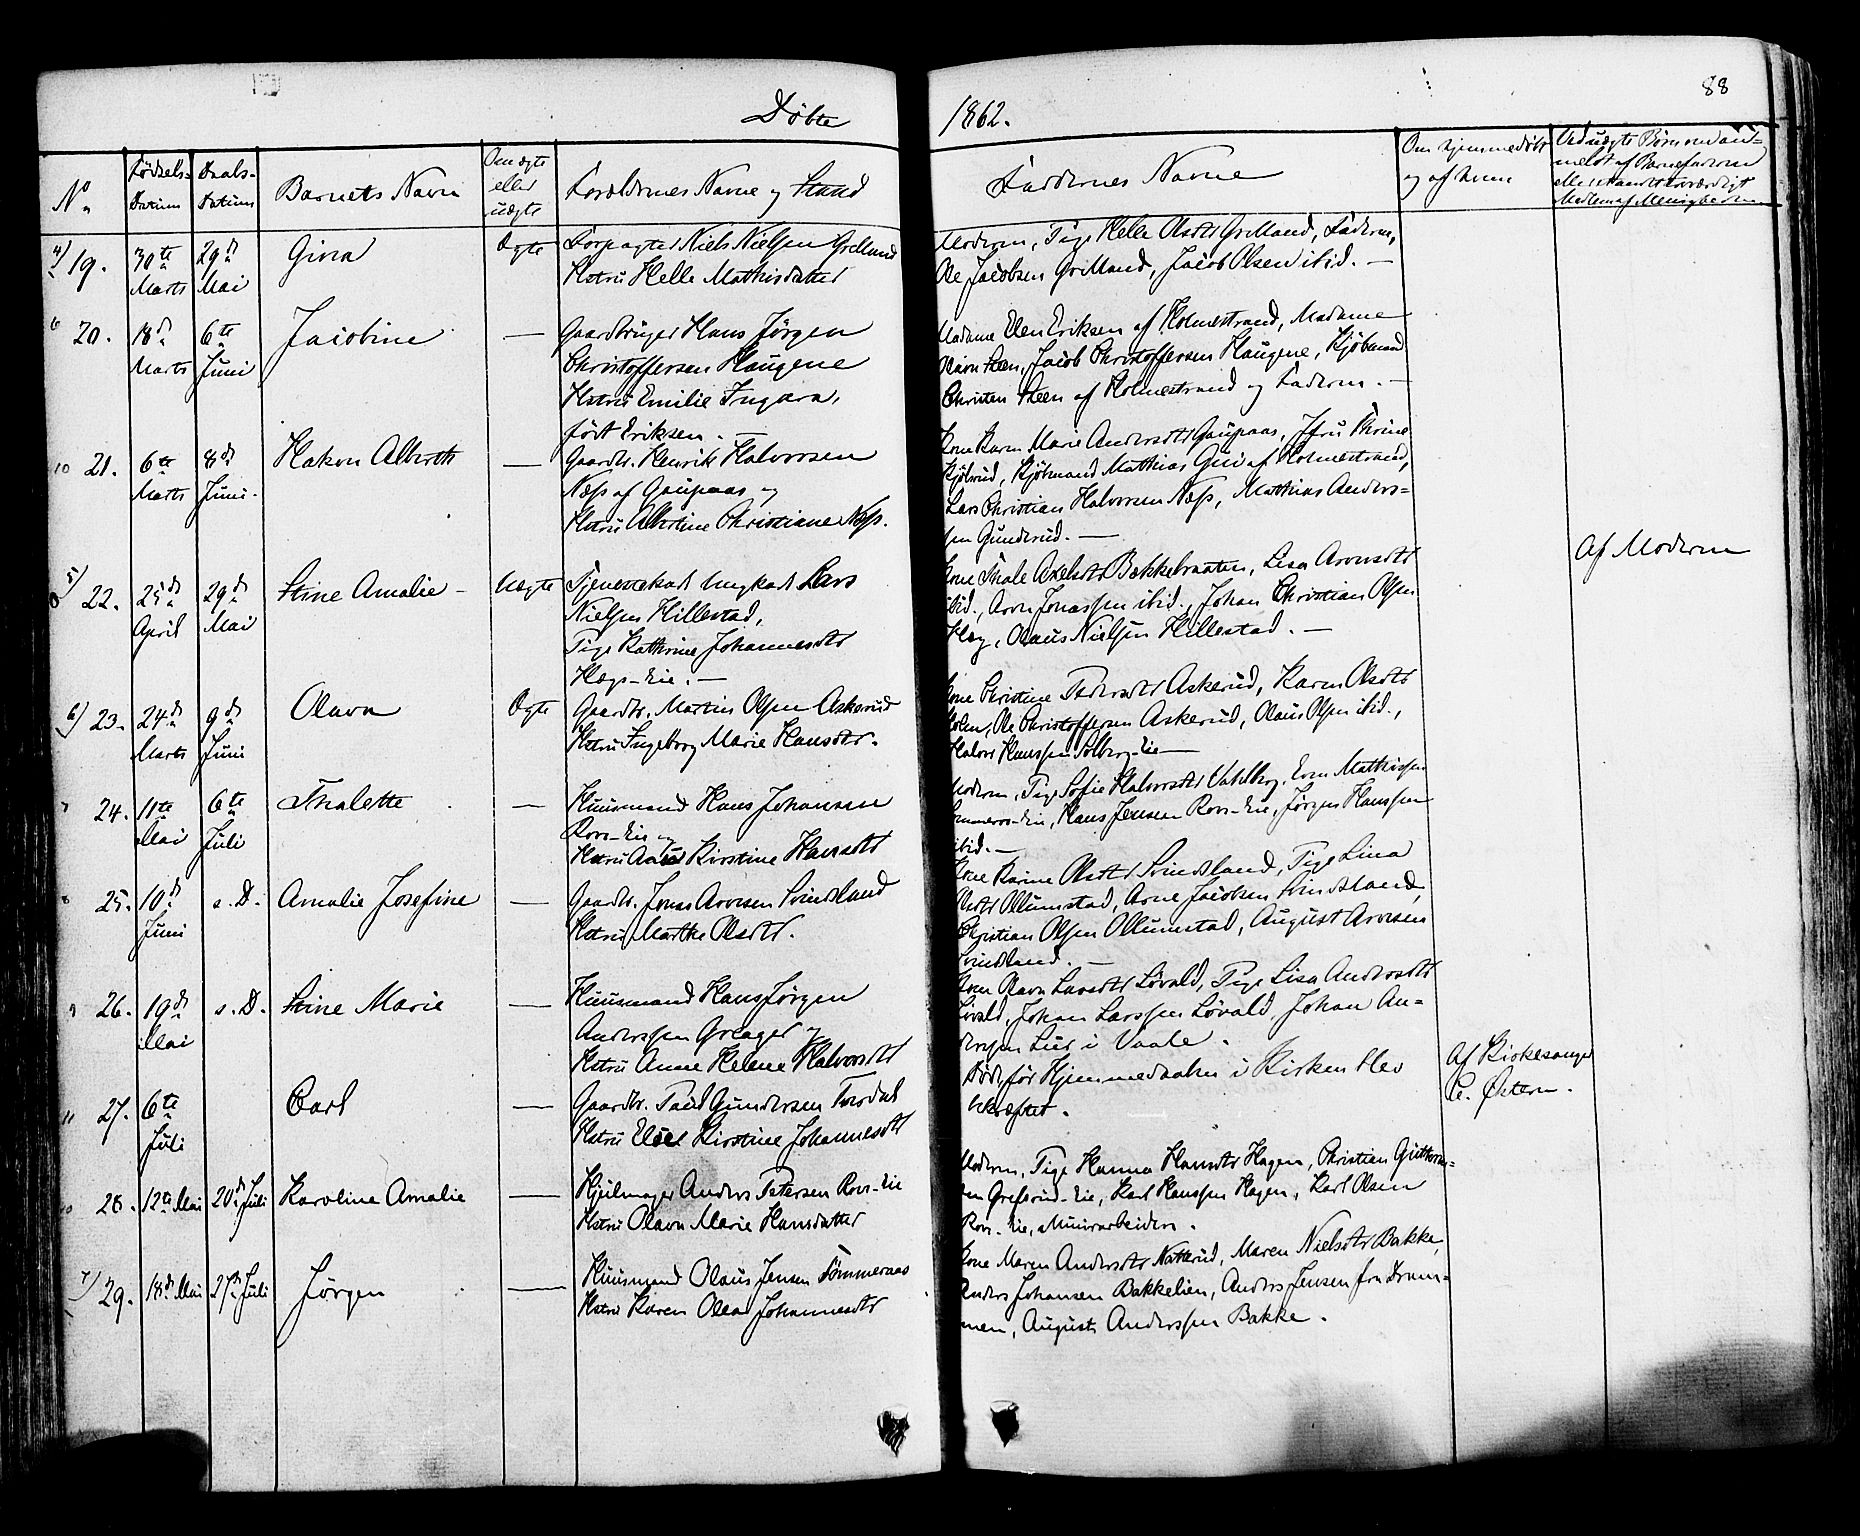 Døbte
1862.
88
No
Fødsels-
Datum
Daabs-
Datum
Barnets Navn
Om ægte
eller
uægte
Forældrenes Navne og Stand
Faddernes Navne
Om hjemmedøbt
og af hvem
Ved uægte Børn om an-
meldt af Barnefaderen
eller et andet troværdigt
Medlem af Menigheden
4) 19.
30te
Marts
29de
Mai
Gina
Ægte
Forpagter Niels Nielsen Grelland
Hstru Helle Mathisdatter
Moderen, Pige Helle Olsdtr Grelland, Faderen,
Ole Jacobsen Grelland, Jacob Olsen ibid. —
6 20.
18de
Marts
6te
Juni
Jacobine
—
Gaardbruger Hans Jørgen
Christoffersen Haugene
Hstru Emilie Ingara,
født Eriksen. —
Madame Elen Eriksen af Holmestrand, Madame
Olava Steen, Jacob Christoffersen Haugene, Kjøbmand
Christen Steen af Holmestrand og Faderen. —
10 21.
6te
Marts
8de
Juni.
Hakon Alberth
—
Gaardbr. Henrik Halvorsen
Næss af Gaupaas og
Hstru Albertine Christiane Næss.
Kone Karen Marie Andersdtr Gaupaas, Jfru Thrine
Kjølsrud, Kjøbmand Mathias Gui af Holmestrand,
Lars Christian Halvorsen Næss, Mathias Anders-
sen Gunderud. —
5) 22.
25de
April
29de
Mai
Stine Amalie —
Uægte
Tjenestekarl Ungkarl Lars
Nielsen Hillestad,
Pige Kathrine Johannesdtr
Hægs-Eie. —
Kone Thale Axelsdtr Bakkebraaten, Lisa Arnesdtr
ibid., Arne Jonassen ibid., Johan Christian Olsen
Hæg, Olaus Nielsen Hillestad. —
Af Moderen
6) 23.
24de
Marts
9de
Juni
Olava
Ægte
Gaardbr. Martin Olsen Askerud
Hstru Ingeborg Marie Hansdtr.
Kone Christine Pedersdtr Askerud, Karen Olsdtr
Holm, Ole Christoffersen Askerud, Olaus Olsen ibid.,
Halvor Hanssen Solberg-Eie —
7 24.
11te
Mai
6te
Juli
Thalette
—
Huusmand Hans Johansen
Rovs-Eie og
Hstru Anne Kirstine Hansdtr
Moderen, Pige Sofie Halvorsdtr Vahlberg, Even Mathissen
Sommeros-Eie, Hans Jensen Rovs-Eie, Jørgen Hanssen
ibid. —
8 25.
10de
Juni
s. D.
Amalie Josefine
—
Gaardbr. Jonas Arnesen Svindsland
Hstru Marthe Olsdtr.
Kone Karine Olsdtr Svindsland, Pige Lina
Olsdtr Ollumstad, Arne Jacobsen Svindsland,
Christian Olsen Ollumstad, August Arnesen
Svindsland. —
9 26.
19de
Mai
s. D.
Stine Marie
—
Huusmand Hans Jørgen
Anderssen Greager og
Hstru Anne Helene Halvorsdtr
Kone Olava Larsdtr Løvald, Pige Lisa Andersdtr
Løvald, Johan Larssen Løvald, Johan An-
derssen Lie i Vaale.
11 27.
6te
Juli
Carl
—
Gaardbr. Paul Gundersen Fosdal
Hstru Else Kirstine Johannesdtr
Død, før Hjemmedaaben i Kirken blev
bekræftet.
Af Kirkesanger
C. Østern.
10 28.
12te Mai
20de Juli
Karoline Amalie
—
Hjulmager Anders Petersen Rovs-Eie
Hstru Olava Marie Hansdatter
Moderen, Pige Hanna Hansdtr Hagen, Christian Guttorm-
sen Grefsrud-Eie, Karl Hanssen Hagen, Karl Olsen
Rovs-Eie, Muurarbeider.
7) 29.
18de Mai
27de Juli
Jørgen
—
Huusmand Olaus Jensen Tømmeraas
Hstru Karen Olea Johannesdtr
Kone Maren Andersdtr Natterud, Maren Nielsdtr Bakke,
Anders Johansen Bakkelien, Anders Jensen fra Dram-
men, August Anderssen Bakke.